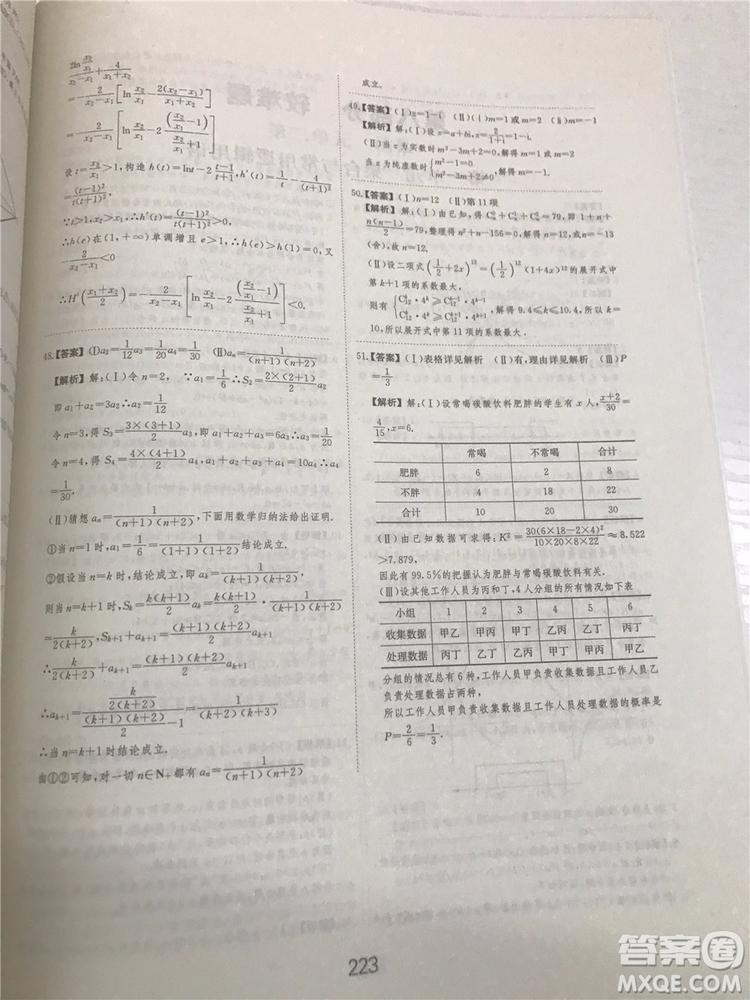 2ln x₂/x₁ / (x₂-x₁) + 4/(x₁+x₂)
=-2/(x₂-x₁)[ln x₂/x₁ - 2(x₂-x₁)/(x₁+x₂)]
=-2/(x₂-x₁)[ln x₂/x₁ - 2 (x₂/x₁-1)/(x₂/x₁+1)]
设t=x₂/x₁>1,构造h(t)=lnt-2(t-1)/(t+1),h′(t)=1/t-4/(t+1)²
=(t-1)²/t(t+1)²
∵t>1,∴h′(t)=(t-1)²/t(t+1)²>0,
∴h(t)在(1,+∞)单调增且e>1,∴h(e)>h(1)=0,又
x₂/x₁>1
∴H′((x₁+x₂)/2)=-2/(x₂-x₁)[ln x₂/x₁ - 2 (x₂/x₁-1)/(x₂/x₁+1)]<0.
48.【答案】(Ⅰ)a₂=1/12 a₃=1/20 a₄=1/30 (Ⅱ)aₙ=1/(n+1)(n+2)
【解析】解:(Ⅰ)令n=2, ∵a₁=1/6 ∴S₂=2×(2+1)/2 a₂
即a₁+a₂=3a₂ ∴a₂=1/12
令n=3,得S₃=3×(3+1)/2 a₃,即a₁+a₂+a₃=6a₃ ∴a₃=1/20
令n=4,得S₄=4×(4+1)/2 即a₁+a₂+a₃+a₄=10a₄ ∴a₄=
1/30.
(Ⅱ)猜想aₙ=1/(n+1)(n+2),下面用数学归纳法给出证明.
①当n=1时,a₁=1/6=1/(1+1)(1+2)结论成立.
②假设当n=k时,结论成立,即aₖ=1/(k+1)(k+2)
则当n=k+1时,Sₖ=k(k+1)/2 aₖ=k(k+1)/2·1/(k+1)(k+2)=
k/2(k+2),Sₖ₊₁=(k+1)(k+2)/2 aₖ₊₁即Sₖ+aₖ₊₁=(k+1)(k+2)/2 aₖ₊₁
∴k/2(k+2)+aₖ₊₁=(k+1)(k+2)/2 aₖ₊₁
∴aₖ₊₁=k/2(k+2) / ((k+1)(k+2)/2-1)=k/2(k+2) / (k(k+3)/2)=1/(k+2)(k+3)
∴当n=k+1时结论成立.
由①②可知,对一切n∈N₊都有aₙ=1/(n+1)(n+2)
成立.
49.【答案】(Ⅰ)z=1-i (Ⅱ)(ⅰ)m=1或m=2 (ⅱ)m=-1
【解析】解:(Ⅰ)设z=a+bi,z=2/(1+i)=1-i.
(Ⅱ)当z为实数时m²-3m+2=0,解得m=1或m=2
当z为纯虚数时{m²-1=0 m²-3m+2≠0,解得m=-1
50.【答案】(Ⅰ)n=12 (Ⅱ)第11项
【解析】解:(Ⅰ)由已知,得C⁰ₙ+C¹ₙ+C²ₙ=79,即1+n+
n(n-1)/2=79,整理得n²+n-156=0,解得n=12或n=-13
(舍),故n=12.
(Ⅱ)设二项式(1/2+2x)¹²=(1/2)¹²(1+4x)¹²的展开式中
第k+1项的系数最大.
则有{Cᵏ₁₂·4ᵏ≥Cᵏ⁻¹₁₂·4ᵏ⁻¹ Cᵏ₁₂·4ᵏ≥Cᵏ⁺¹₁₂·4ᵏ⁺¹,解得9.4≤k≤10.4,所以k=
10,所以展开式中第11项的系数最大.
51.【答案】(Ⅰ)表格详见解析 (Ⅱ)有,理由详见解析 (Ⅲ)P
=1/3
【解析】解:(Ⅰ)设常喝碳酸饮料肥胖的学生有x人,(x+2)/30=
4/15,x=6.
常喝 不常喝 合计
肥胖 6 2 8
不胖 4 18 22
合计 10 20 30
(Ⅱ)由已知数据可求得:K²=30(6×18-2×4)²/10×20×8×22≈8.522
>7.879,
因此有99.5%的把握认为肥胖与常喝碳酸饮料有关.
(Ⅲ)设其他工作人员为丙和丁,4人分组的所有情况如下表
小组 1 2 3 4 5 6
收集数据 甲乙 甲丙 甲丁 乙丙 乙丁 丙丁
处理数据 丙丁 乙丁 乙丙 甲丁 甲丙 甲乙
分组的情况总有6种,工作人员甲负责收集数据且工作人员乙
负责处理数据占两种,
所以工作人员甲负责收集数据且工作人员处理数据的概率是
P=2/6=1/3.
223
答案圈
MXQE.COM